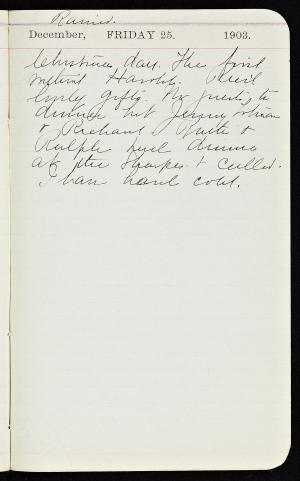 Rained.
December, FRIDAY 25. 1903.
Christmas day. The first
without Harold.
gifts. No guests to
dinner but Jenny
& Richard. &
Ralph had dinner
at the Sharpes & called.
I have hard cold.